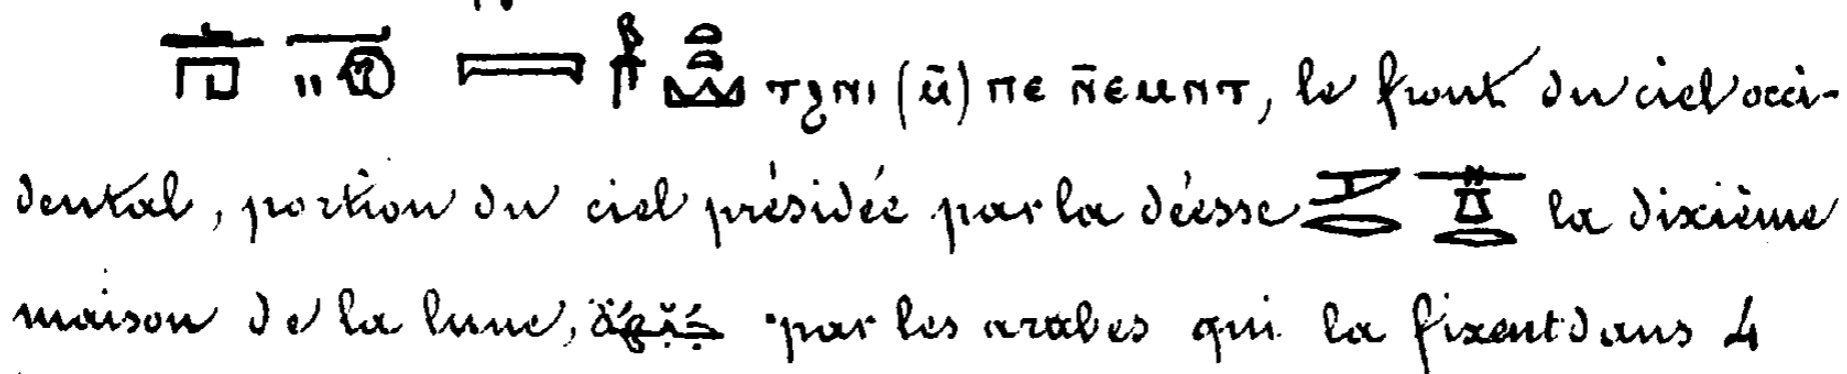 ⲧϩⲛⲓ (ⲙ̄) ⲡⲉ ⲛ̄ⲉⲙⲛⲧ, le front du ciel occi-
dental, portion du ciel présidée par la déesse la dixième
maison de la lune, par les arabes qui la fixent dans 4